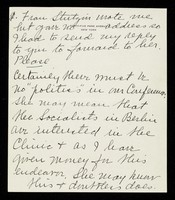 8. Frau Stutzin wrote me
but gave no address so
I had to send my reply
to you to forward to her.
Please
Certainly there must be
no "politics" in our Conference
She may mean that
the Socialists in Berlin
are interested in the
Clinic & as I hear
given money for this
endeavor. She may know
this & doubtless does.